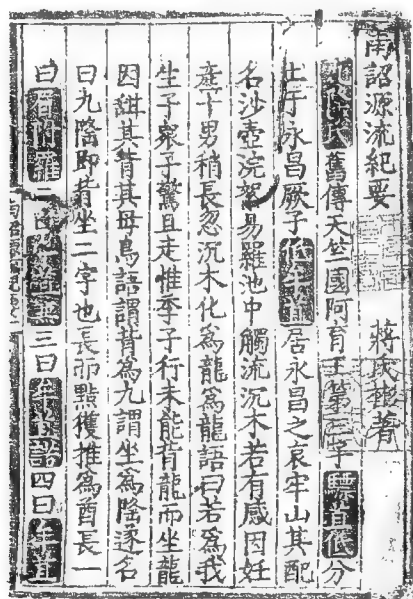 南詔源流紀要 蔣氏彬著
氏舊傳天竺國阿育王第三子驃苴低分
土于永昌厥子低牟苴居永昌之哀牢山其配
名沙壺浣絮易羅池中觸流沉木若有感因妊
產十男稍長忽沉木化為龍為龍語曰若為我
生子衆子驚且走惟季子行未能背龍而坐龍
因䑛其背其母鳥語謂背為九謂坐為隆遂名
曰九隆即背坐二字也長而點獲推為酋長一
曰苴附羅二曰牟苴兼三曰牟苴諾四曰